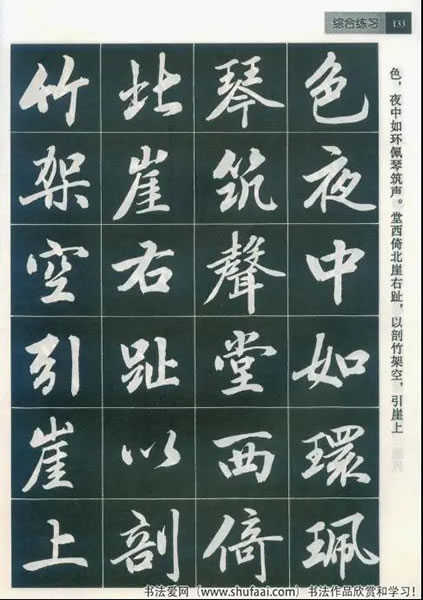 综合练习 133
色，夜中如环佩琴筑声。堂西倚北崖右趾，以剖竹架空，引崖上
色夜中如環珮
琴筑聲堂西倚
北崖右趾以剖
竹架空引崖上
书法爱网（www.shufaai.com）书法作品欣赏和学习！